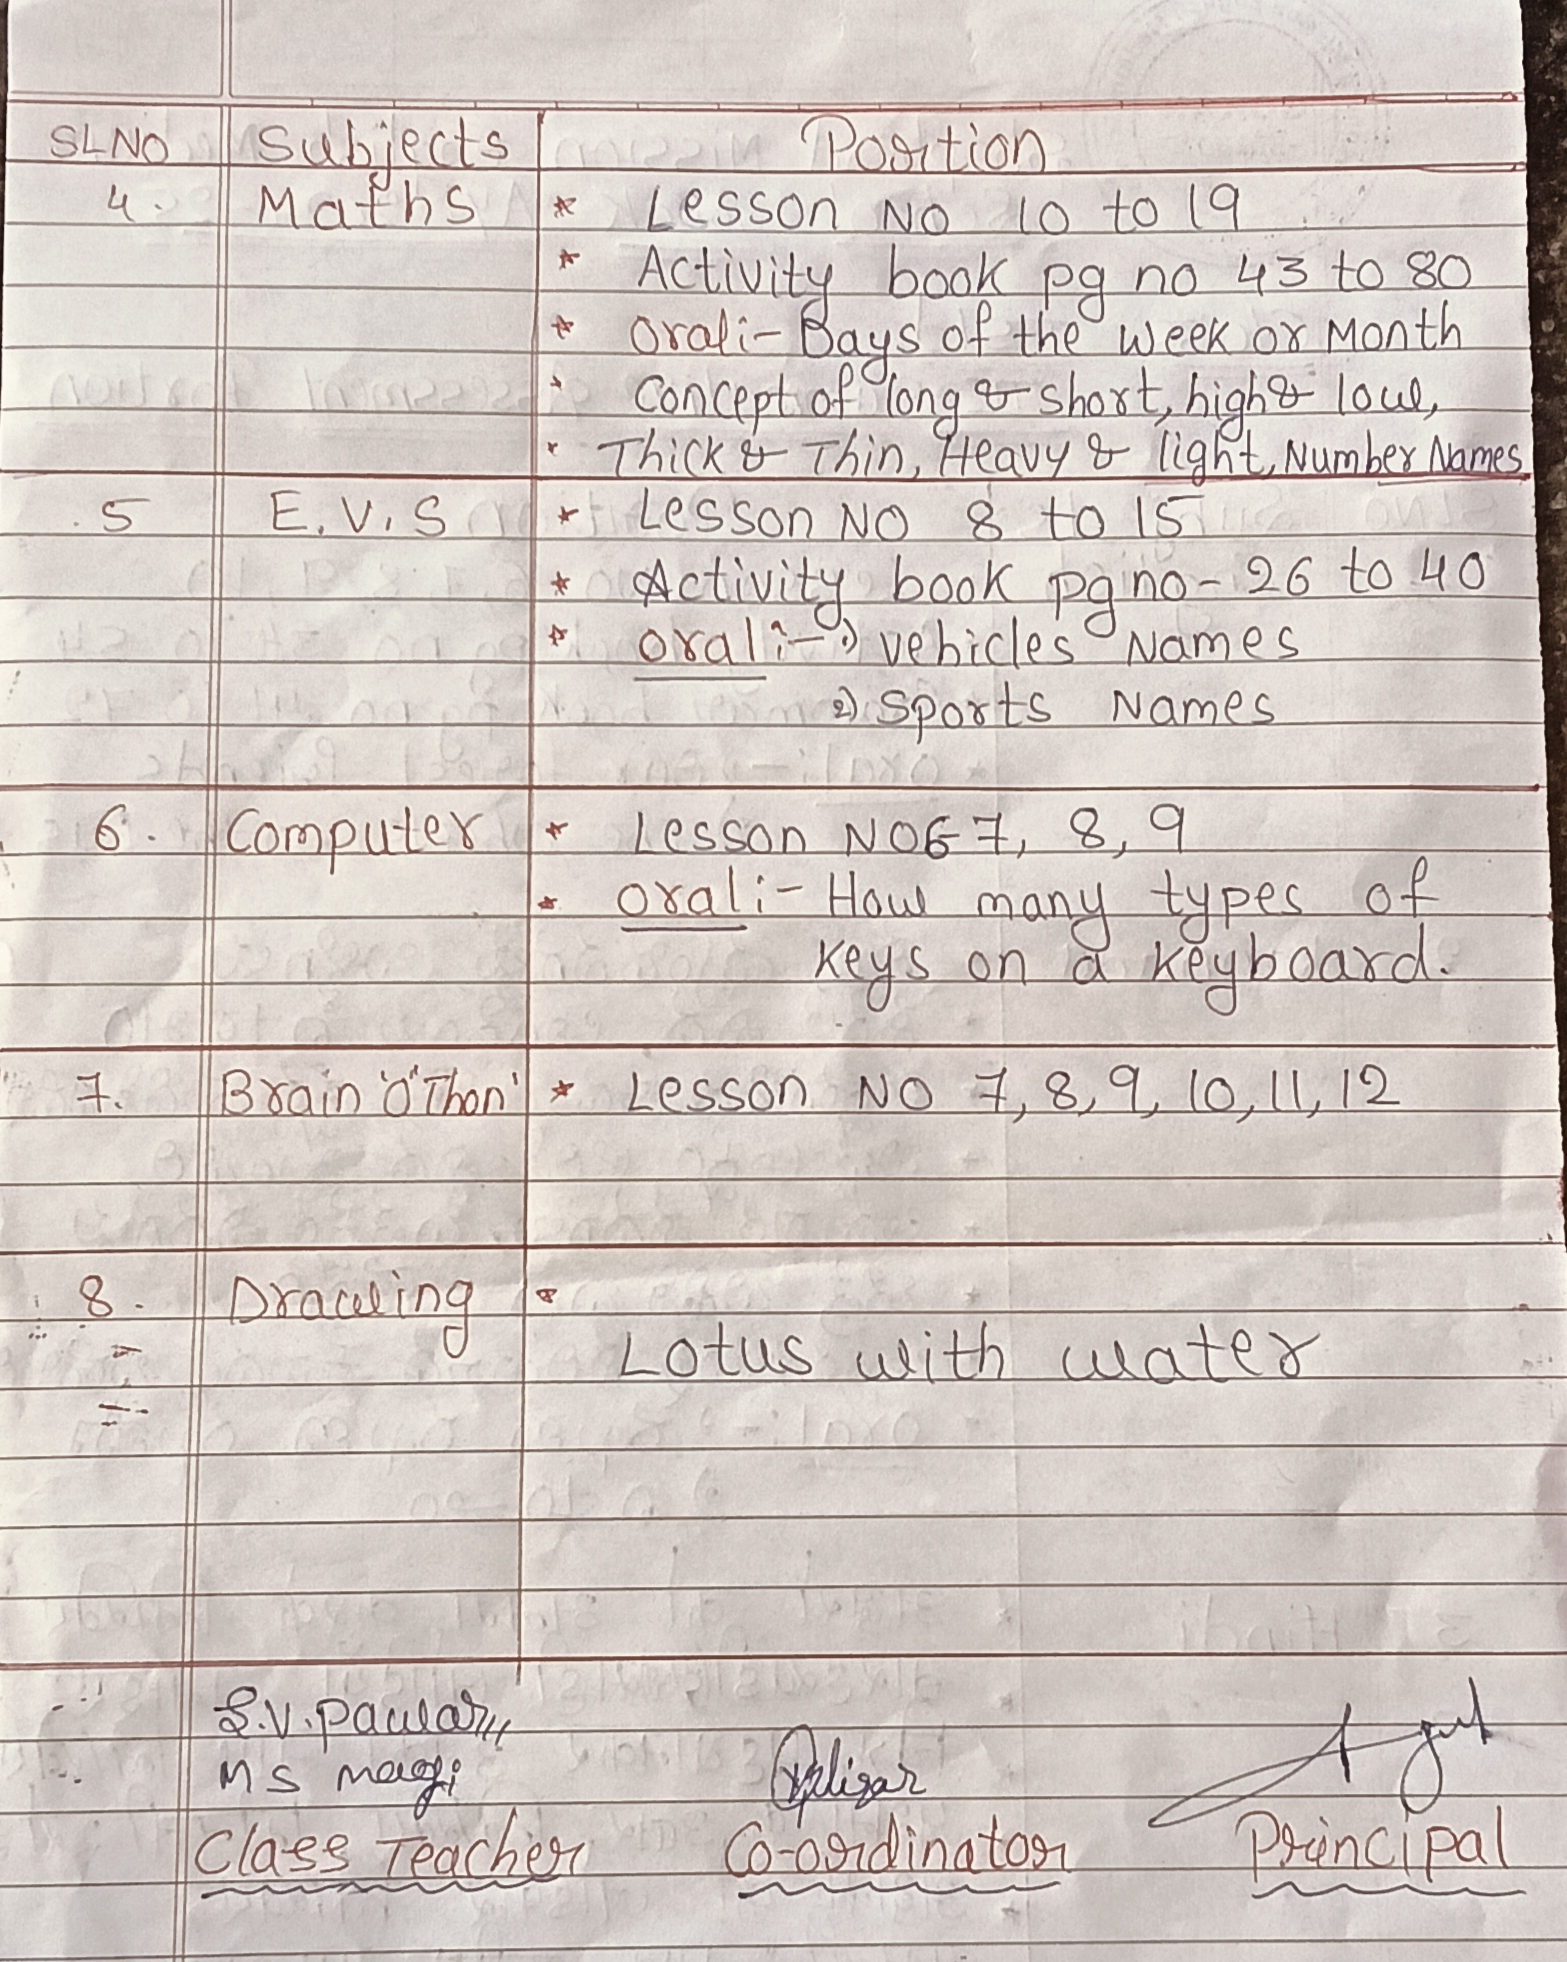 SLNO Subjects Portion
4. Maths * Lesson NO 10 to 19
* Activity book pg no 43 to 80
* Oral:- Days of the Week or Month
* Concept of long & short, high & low,
* Thick & Thin, Heavy & light, Number Names
5 E.V.S * Lesson NO 8 to 15
* Activity book pg no - 26 to 40
* Oral:- 1) vehicles Names
2) Sports Names
6. Computer * Lesson NO 6 7, 8, 9
* Oral:- How many types of
keys on a keyboard.
7. Brain 'O' Thon' * Lesson NO 7, 8, 9, 10, 11, 12
8. Drawing *
Lotus with water
S.V. Pawar
M S
Class Teacher Co-ordinator Principal